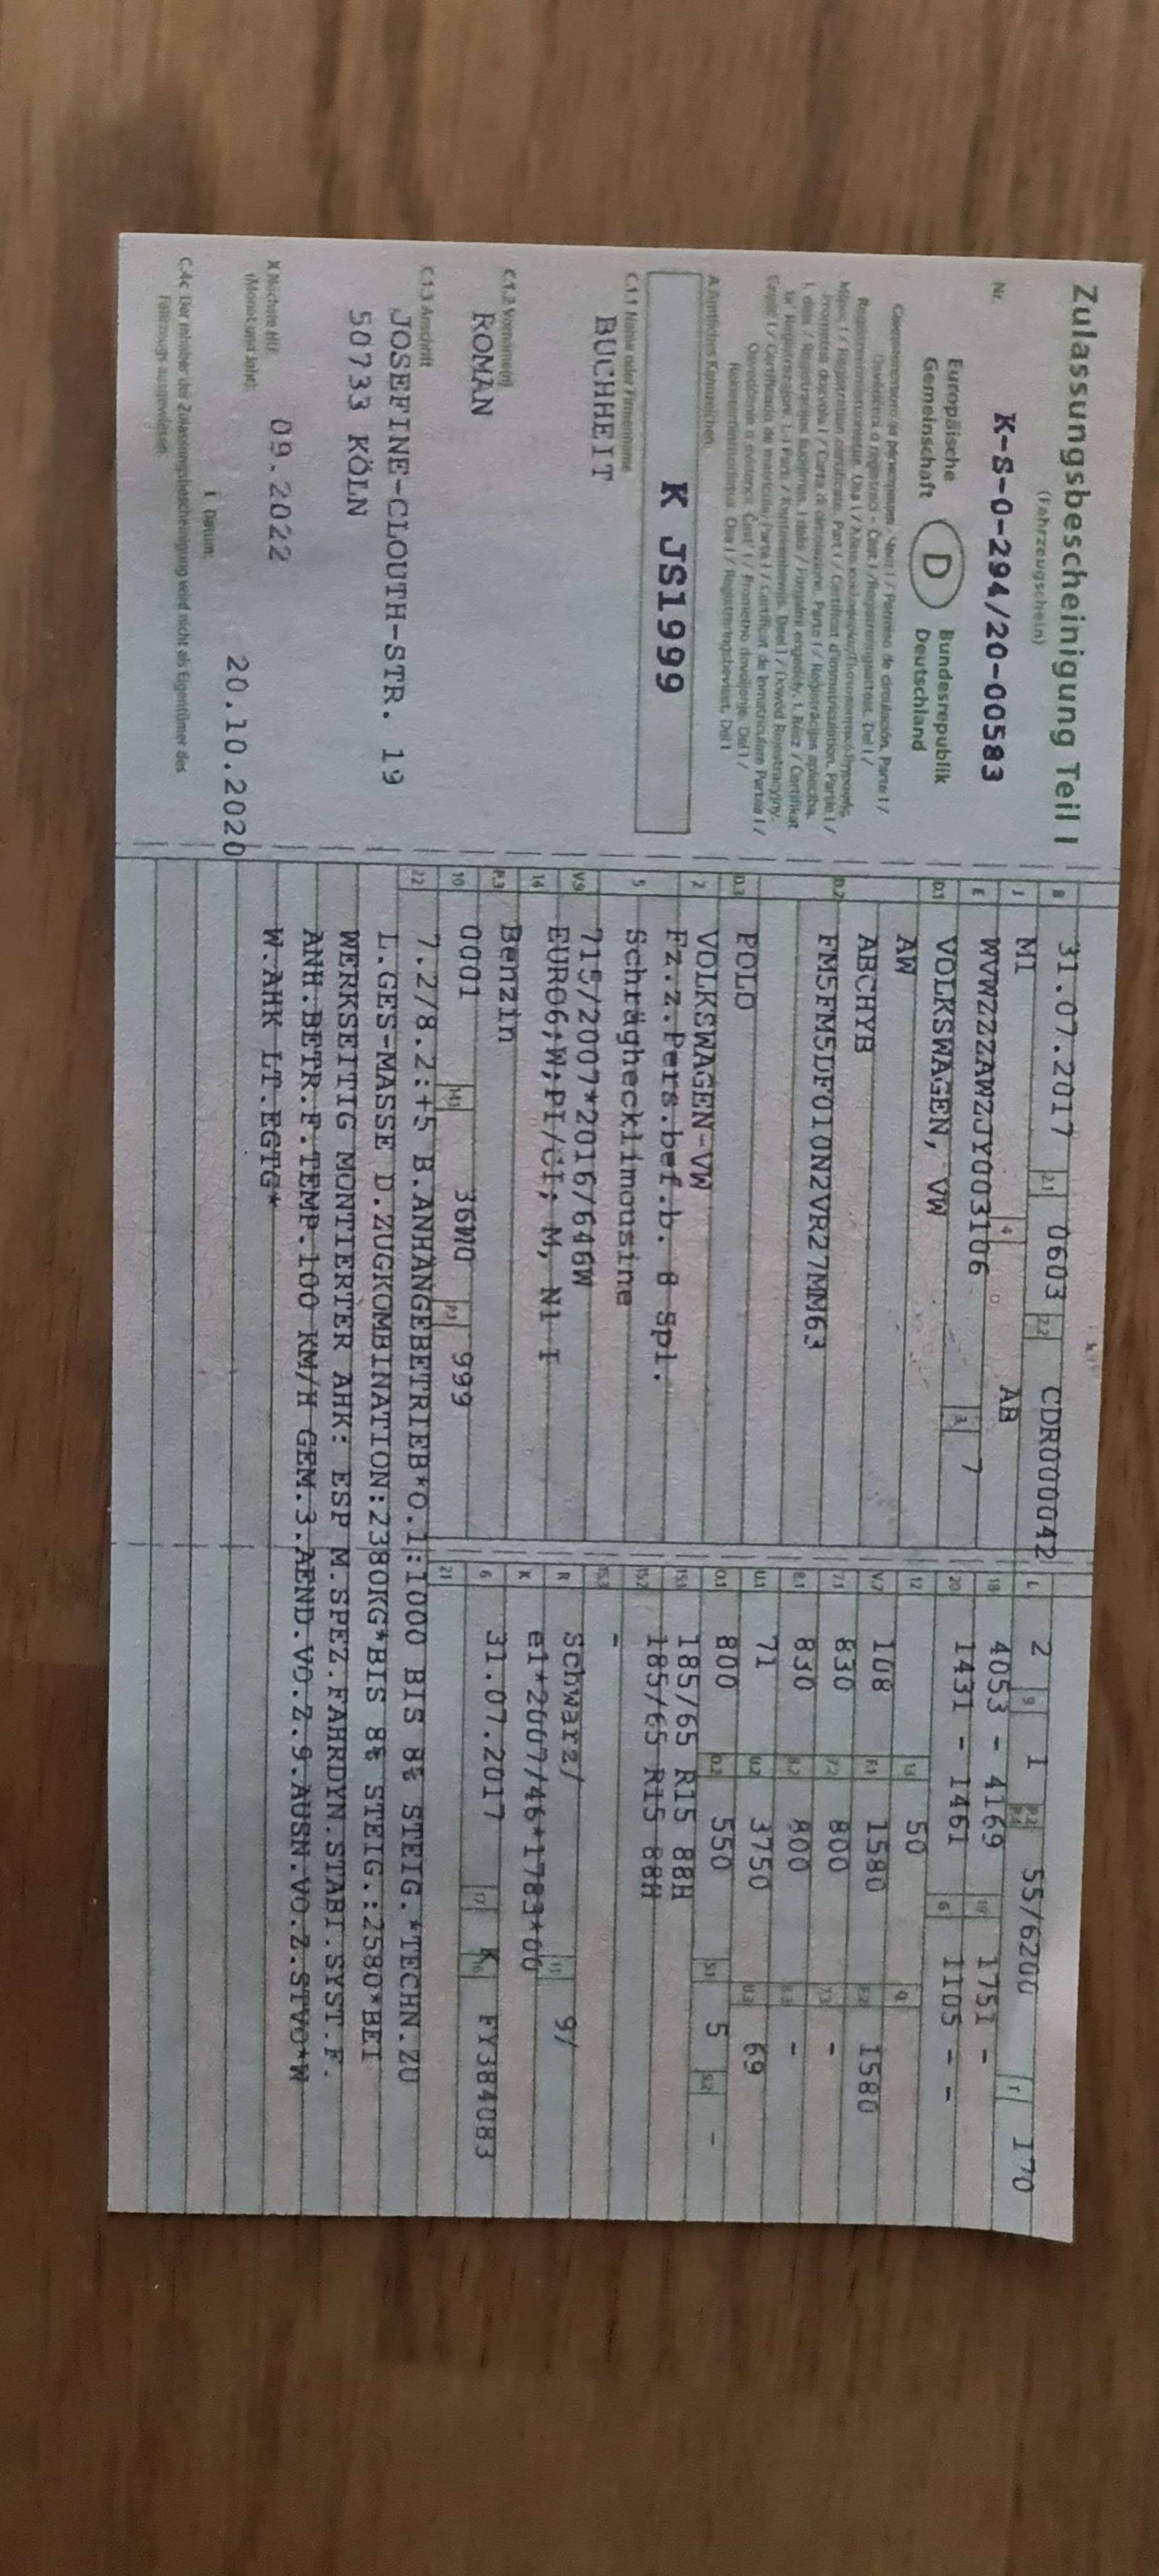 Zulassungsbescheinigung Teil I
(Fahrzeugschein)
Nr.
K-S-0-294/20-00583
Europäische
Gemeinschaft
D
Bundesrepublik
Deutschland
A Amtliches Kennzeichen
K JS1999
C.1.1 Name oder Firmenname
BUCHHEIT
C.1.2 Vorname(n)
ROMAN
C.1.3 Anschrift
JOSEFINE-CLOUTH-STR. 19
50733 KÖLN
X Nächste HU
(Monat und Jahr):
09.2022
I Datum:
20.10.2020
C.4c Der Inhaber der Zulassungsbescheinigung wird nicht als Eigentümer des
Fahrzeugs ausgewiesen.
B 31.07.2017 2.1 0603 2.2 CDR000042
J M1 4 AB
E WVWZZZAWZJY003106 3 7
D.1 VOLKSWAGEN, VW
AW
D.2 ABCHYB
FM5FM5DF010N2VR27MM63
D.3 POLO
2 VOLKSWAGEN-VW
5 Fz.z.Pers.bef.b. 8 Spl.
Schräghecklimousine
V.9 715/2007*2016/646W
14 EURO6;W;PI/CI; M, N1 I
P.3 Benzin
10 0001 14.1 36W0 P.1 999
L 2 9 1 P.2 P.4 55/6200 T 170
18 4053 - 4169 19 1751 -
20 1431 - 1461 G 1105 - -
12 13 50 Q
V.7 108 F.1 1580 F.2 1580
7.1 830 7.2 800 7.3 -
8.1 830 8.2 800 8.3 -
U.1 71 U.2 3750 U.3 69
O.1 800 O.2 550 S.1 5 S.2 -
15.1 185/65 R15 88H
15.2 185/65 R15 88H
15.3 -
R Schwarz/ 11 9/
K e1*2007/46*1783*00
6 31.07.2017 17 K 16 FY384083
21
22 7.2/8.2:+5 B.ANHÄNGEBETRIEB*O.1:1000 BIS 8% STEIG.*TECHN.ZU
L.GES-MASSE D.ZUGKOMBINATION:2380KG*BIS 8% STEIG.:2580*BEI
WERKSEITIG MONTIERTER AHK: ESP M.SPEZ.FAHRDYN.STABI.SYST.F.
ANH.BETR.F.TEMP.100 KM/H GEM.3.AEND.VO.Z.9.AUSN.VO.Z.STVO*W
W.AHK LT.EGTG*